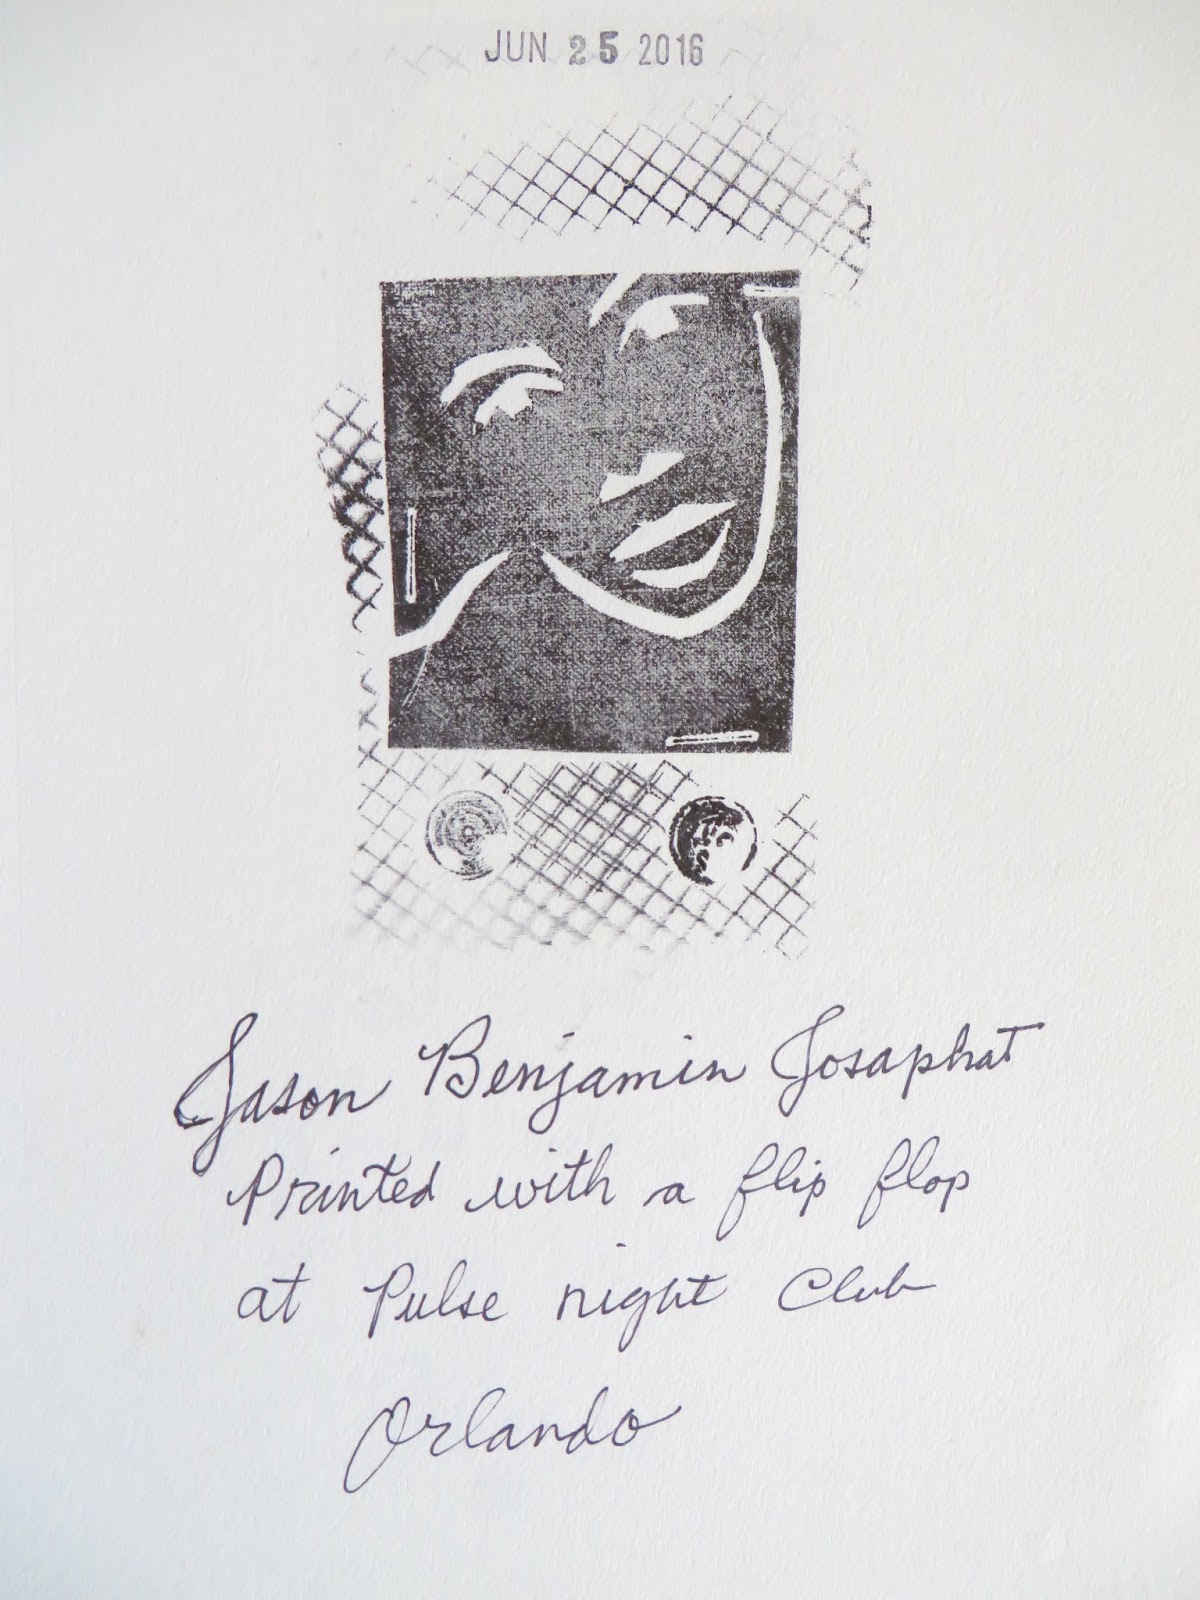 JUN 25 2016
Jason Benjamin Josaphat
Printed with a flip flop
at Pulse night Club
Orlando